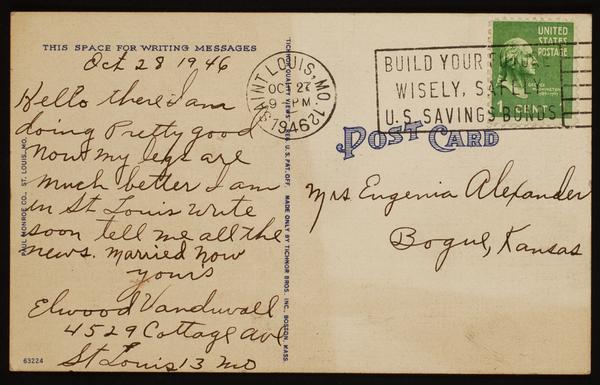 THIS SPACE FOR WRITING MESSAGES
Oct 28 1946
Hello there I am
doing Pretty good
now my legs are
much better I am
in St Louis write
soon tell me all the
news. Married now
yours
Elwood Vanduvall
4529 Cottage ave
St Louis 13 Mo
63224
PAUL MONROE CO., ST. LOUIS, MO.
TICHNOR QUALITY VIEWS REG. U.S. PAT. OFF. MADE ONLY BY TICHNOR BROS. INC., BOSTON, MASS.
SAINT LOUIS, MO. 12
OCT 27
9 - PM
1946
BUILD YOUR FUTURE
WISELY, SAFELY
U.S. SAVINGS BONDS
UNITED
STATES
POSTAGE
1 CENTS
POST CARD
Mrs Eugenia Alexander
Bogue, Kansas